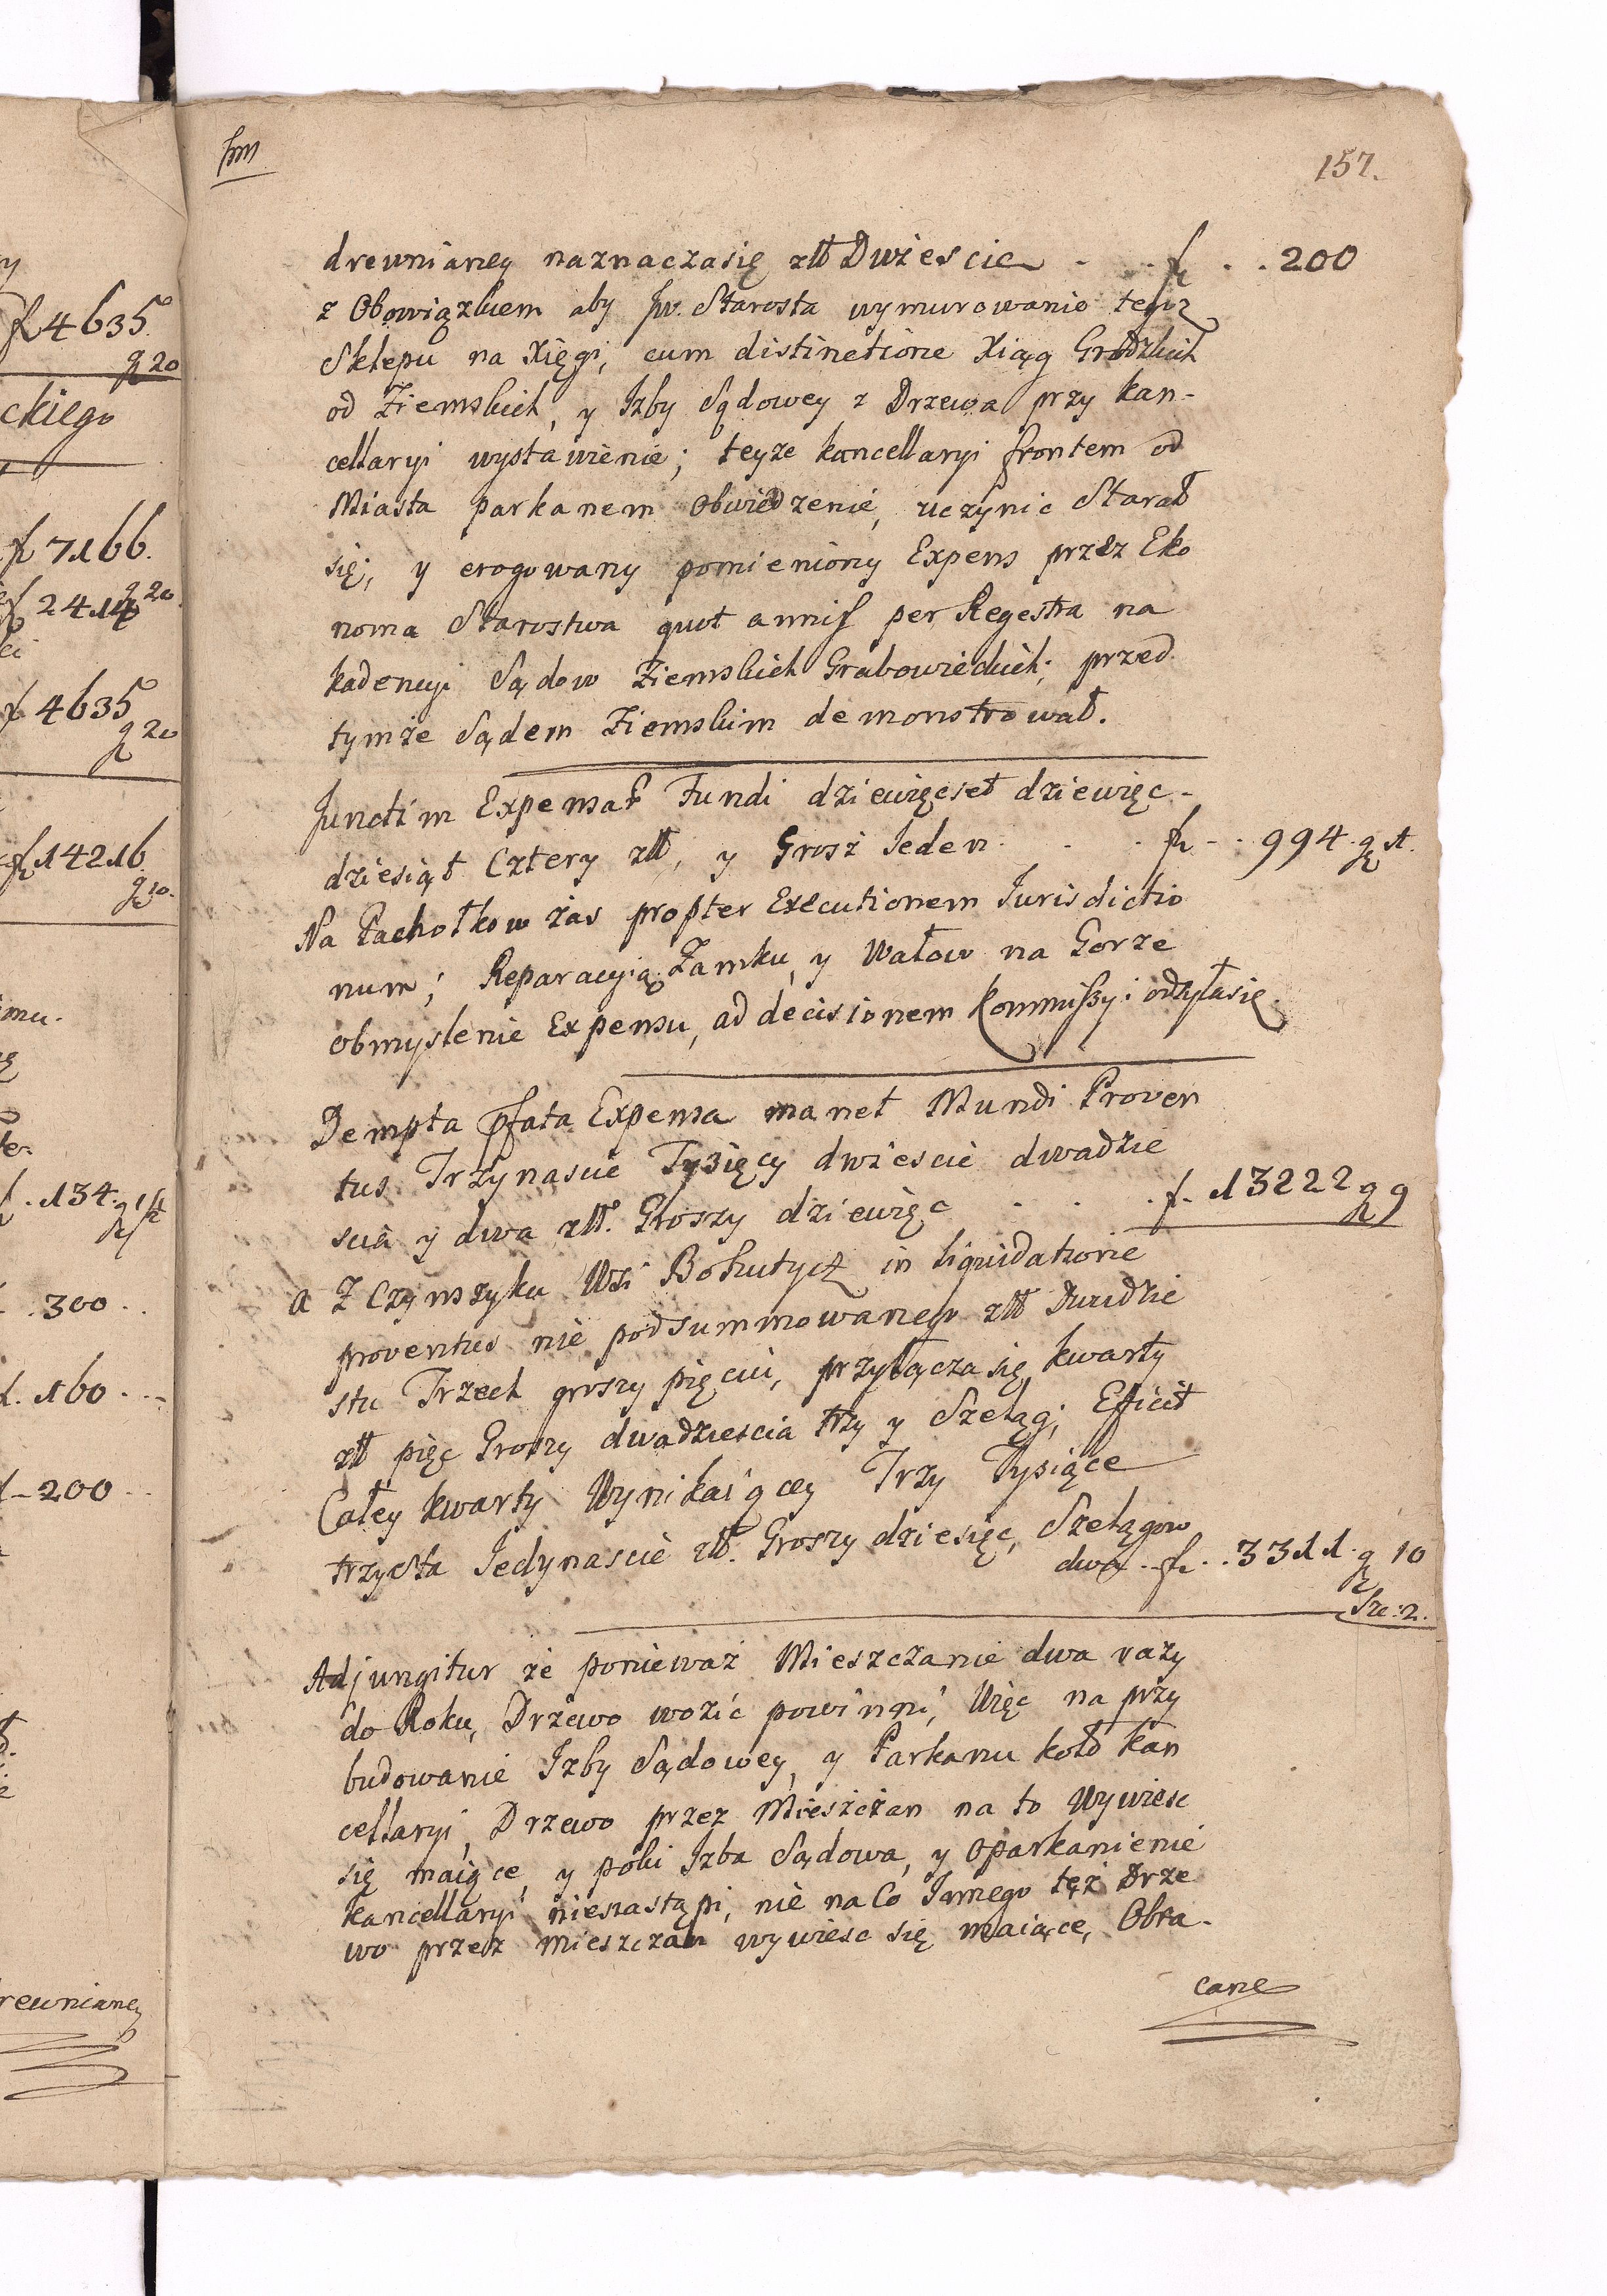 157.
drewnianey naznaczasię złł Dwiescie . . f . . 200
z Obowiązkiem aby Jw. Starosta wymurowanie tegoz
Sklepu na Xięgi, cum distinctione Xiąg Grodzkich
od Ziemskich, y Izby Sądowey z Drzewa przy kan-
cellaryi wystawienie; teyze kancellaryi frontem od
Miasta parkanem obwiedzenie, uczynic Starał
się, y erogowany pomieniony Expens przez Eko
noma Starostwa quot annis per Regestra na
kadencyi Sądow Ziemskich Grabowieckich; przed
tymże Sądem Ziemskim demonstrował.
Junctim Expensar Fundi dziewięcset dziewięc-
dziesiąt Cztery złł, y Grosz Jeden . . . f . . 994. g 1.
Na Pachołkow zas propter Executionem Jurisdictio
num; Reparacyią Zamku, y Wałow na Gorze
obmyslenie Expensu, ad decisionem Kommissyi odsyłasię.
Dempta pfata Expensa manet Mundi Proven
tus Trzynascie Tysięcy dwiescie dwadzie
scia y dwa złł. Groszy dziewięc . . . f. 13222 g 9
a Z Czynszyku Wsi Bohutycz in liquidatione
proventus nie podsummowanego złł Dwudzie
stu Trzech groszy pięciu, przyłącza się kwarty
złł pięc Groszy dwadziescia trzy y Szeląg; Eficit
Całey kwarty Wynikaiącey Trzy Tysiące
trzysta Jedynascie złł. Groszy dziesięc, Szelągow
dwa . . f . . 3311. g 10
Sze: 2.
Adjungitur że ponieważ Mieszczanie dwa razy
do Roku, Drzewo wozić powinni, Więc na przy
budowanie Izby Sądowey, y Parkanu koło kan
cellaryi, Drzewo przez Mieszczan na to Wywiesc
się maiące, y poki Izba Sądowa, y oparkanienie
kancellaryi nienastąpi, nie na Co Innego też Drze
wo przez Mieszczan wywiesc się maiące, Obra-
cane
f 4635
g 20
ckiego
f 7166.
g 20.
f 2414
f 4635
g 20
f 14216
g 10.
f . 134. g
. 300 . .
f. 160 . . .
f - 200 . .
rewnianey